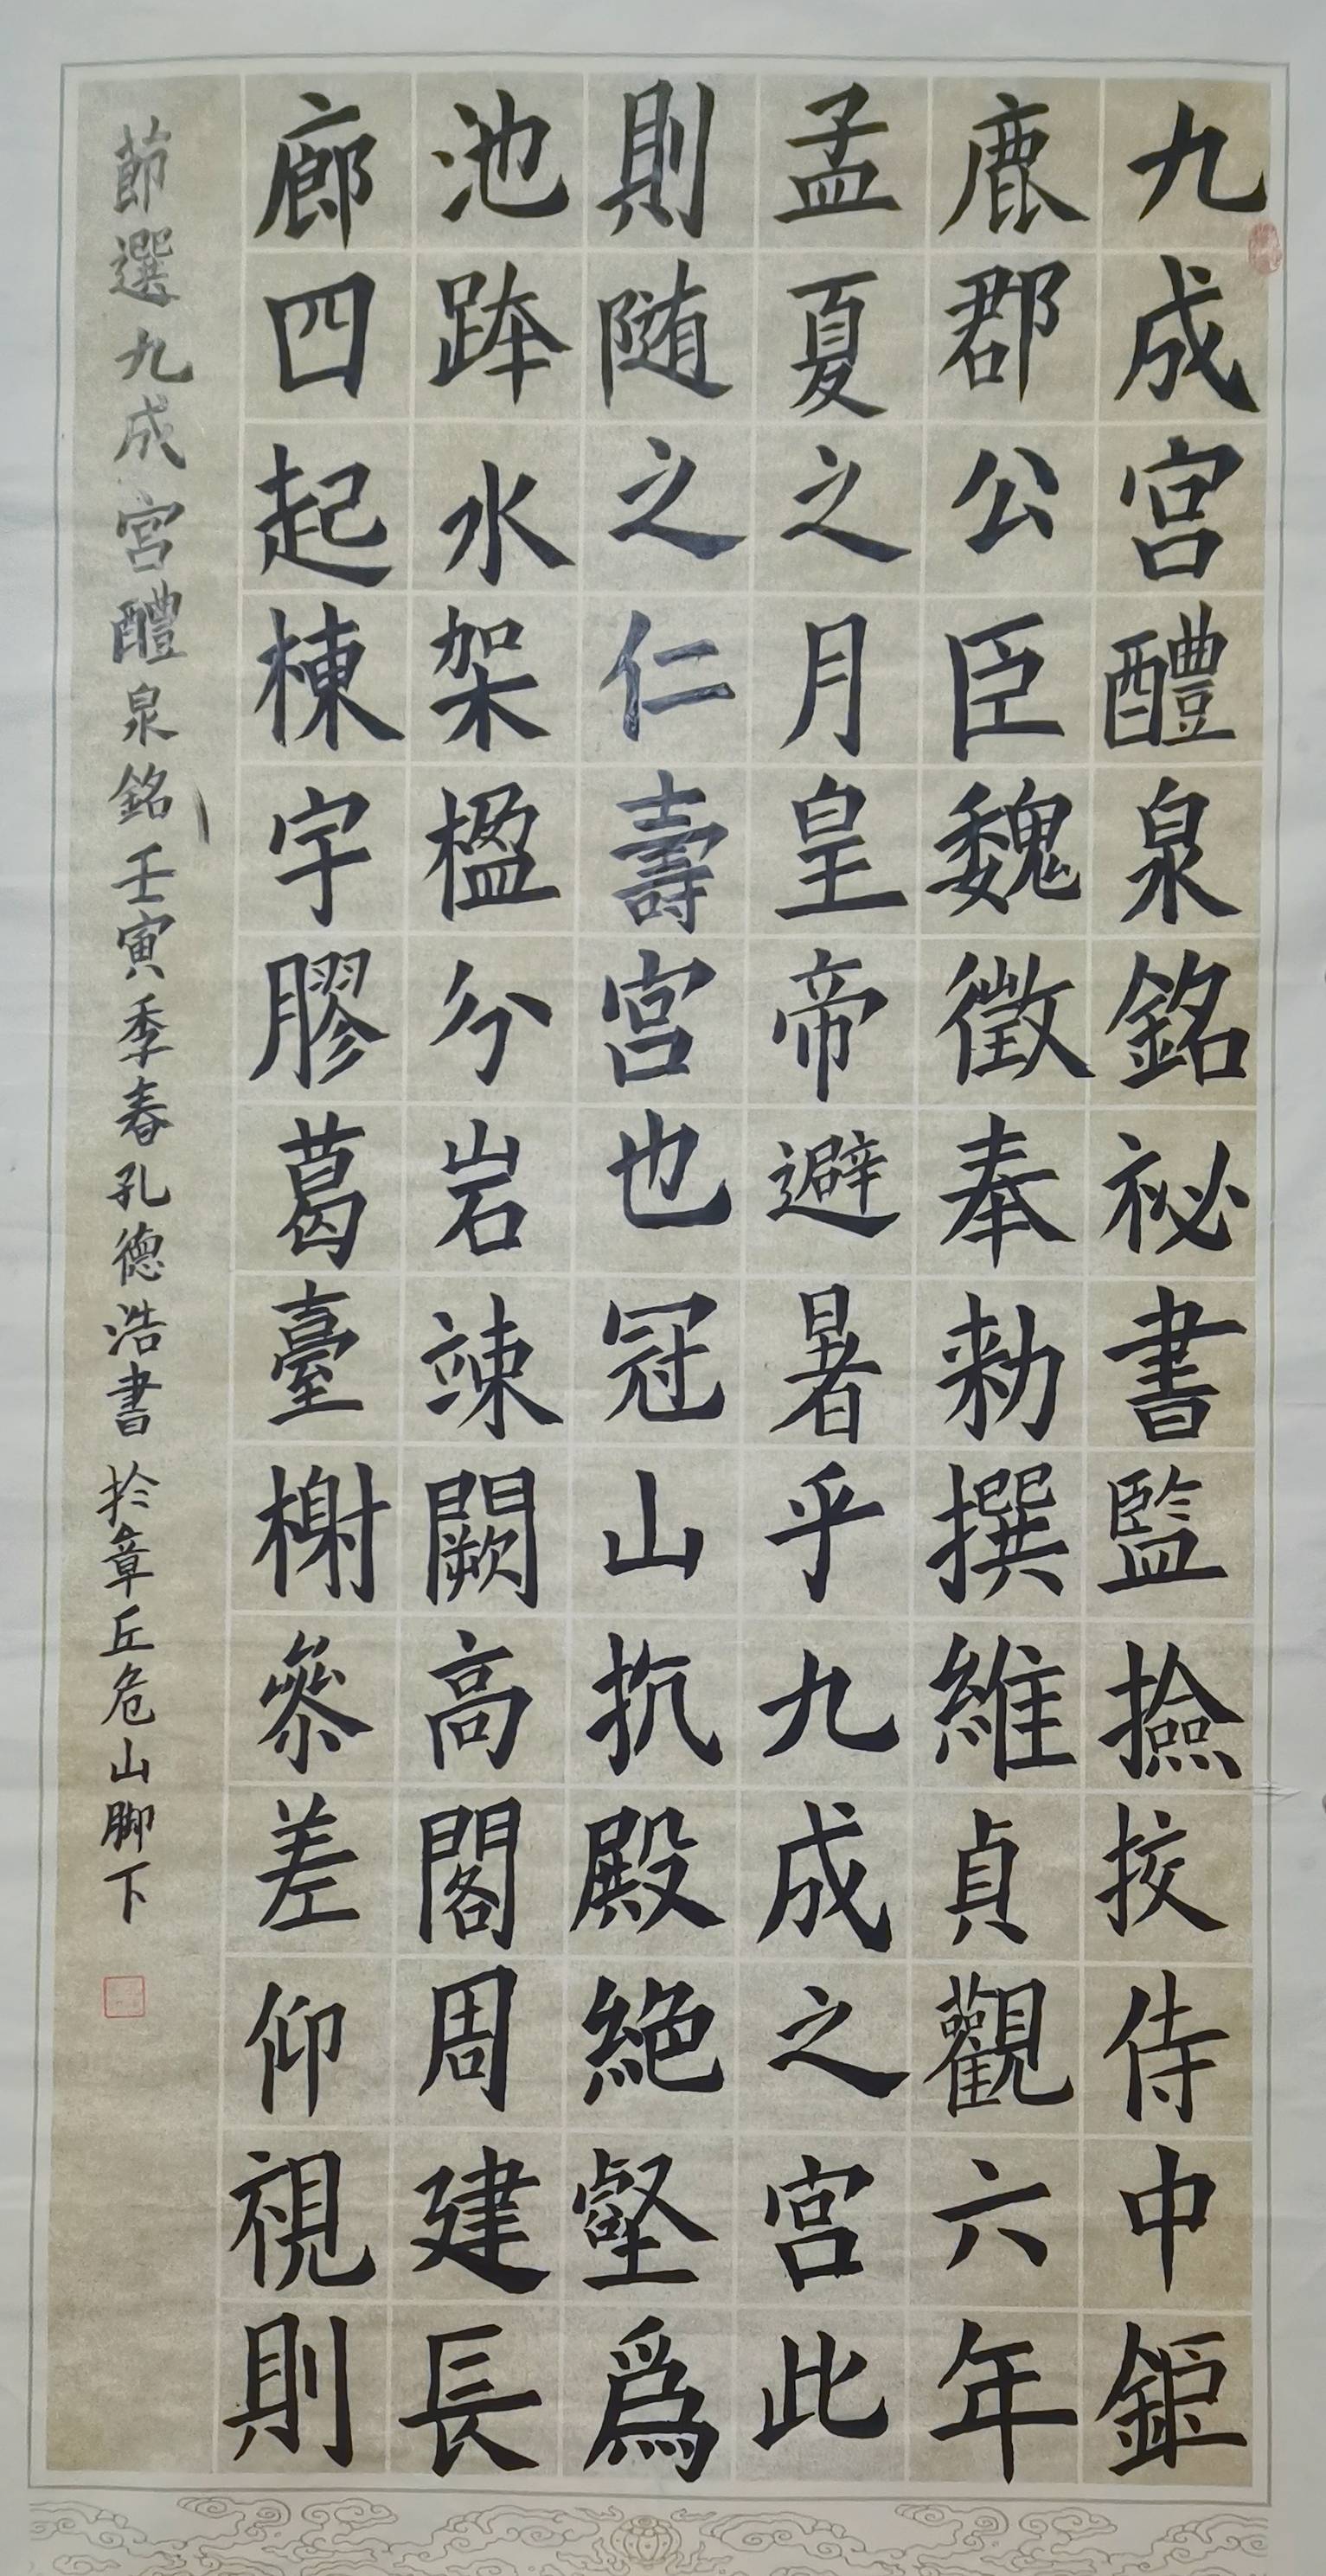 九成宮醴泉銘祕書監撿挍侍中鉅
鹿郡公臣魏徵奉勑撰維貞觀六年
孟夏之月皇帝避暑乎九成之宮此
則随之仁壽宮也冠山抗殿絶壑爲
池跨水架楹分岩竦闕高閣周建長
廊四起棟宇膠葛臺榭叅差仰視則
節選九成宮醴泉銘壬寅季春孔德浩書於章丘危山腳下